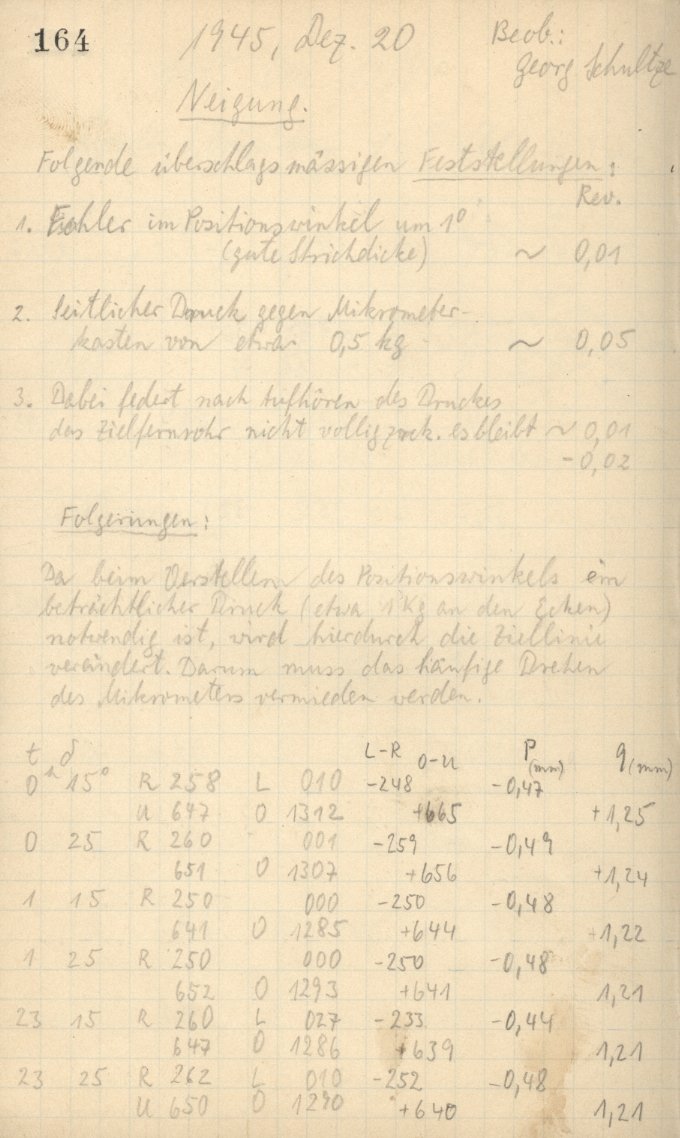 164 1945, Dez. 20 Beob.:
Georg Schultze
Neigung.
Folgende überschlagsmässigen Feststellungen:
Rev.
1. Fehler im Positionswinkel um 1°
(gute Strichdicke) ~ 0,01
2. Seitlicher Druck gegen Mikrometer-
kasten von etwa 0,5 kg ~ 0,05
3. Dabei federt nach Aufhören des Druckes
das Zielfernrohr nicht völlig zurück. es bleibt ~ 0,01
-0,02
Folgerungen:
Da beim Verstellen des Positionswinkels ein
beträchtlicher Druck (etwa 1 Kg an den Ecken)
notwendig ist, wird hierdurch die Ziellinie
verändert. Darum muss das häufige Drehen
des Mikrometers vermieden werden.
t δ L-R O-U P (mm) q (mm)
0h 15° R 258 L 010 -248 -0,47
U 647 O 1312 +665 +1,25
0 25 R 260 001 -259 -0,49
651 O 1307 +656 +1,24
1 15 R 250 000 -250 -0,48
641 O 1285 +644 +1,22
1 25 R 250 000 -250 -0,48
652 O 1293 +641 1,21
23 15 R 260 L 027 -233 -0,44
647 O 1286 +639 1,21
23 25 R 262 L 010 -252 -0,48
U 650 O 1290 +640 1,21